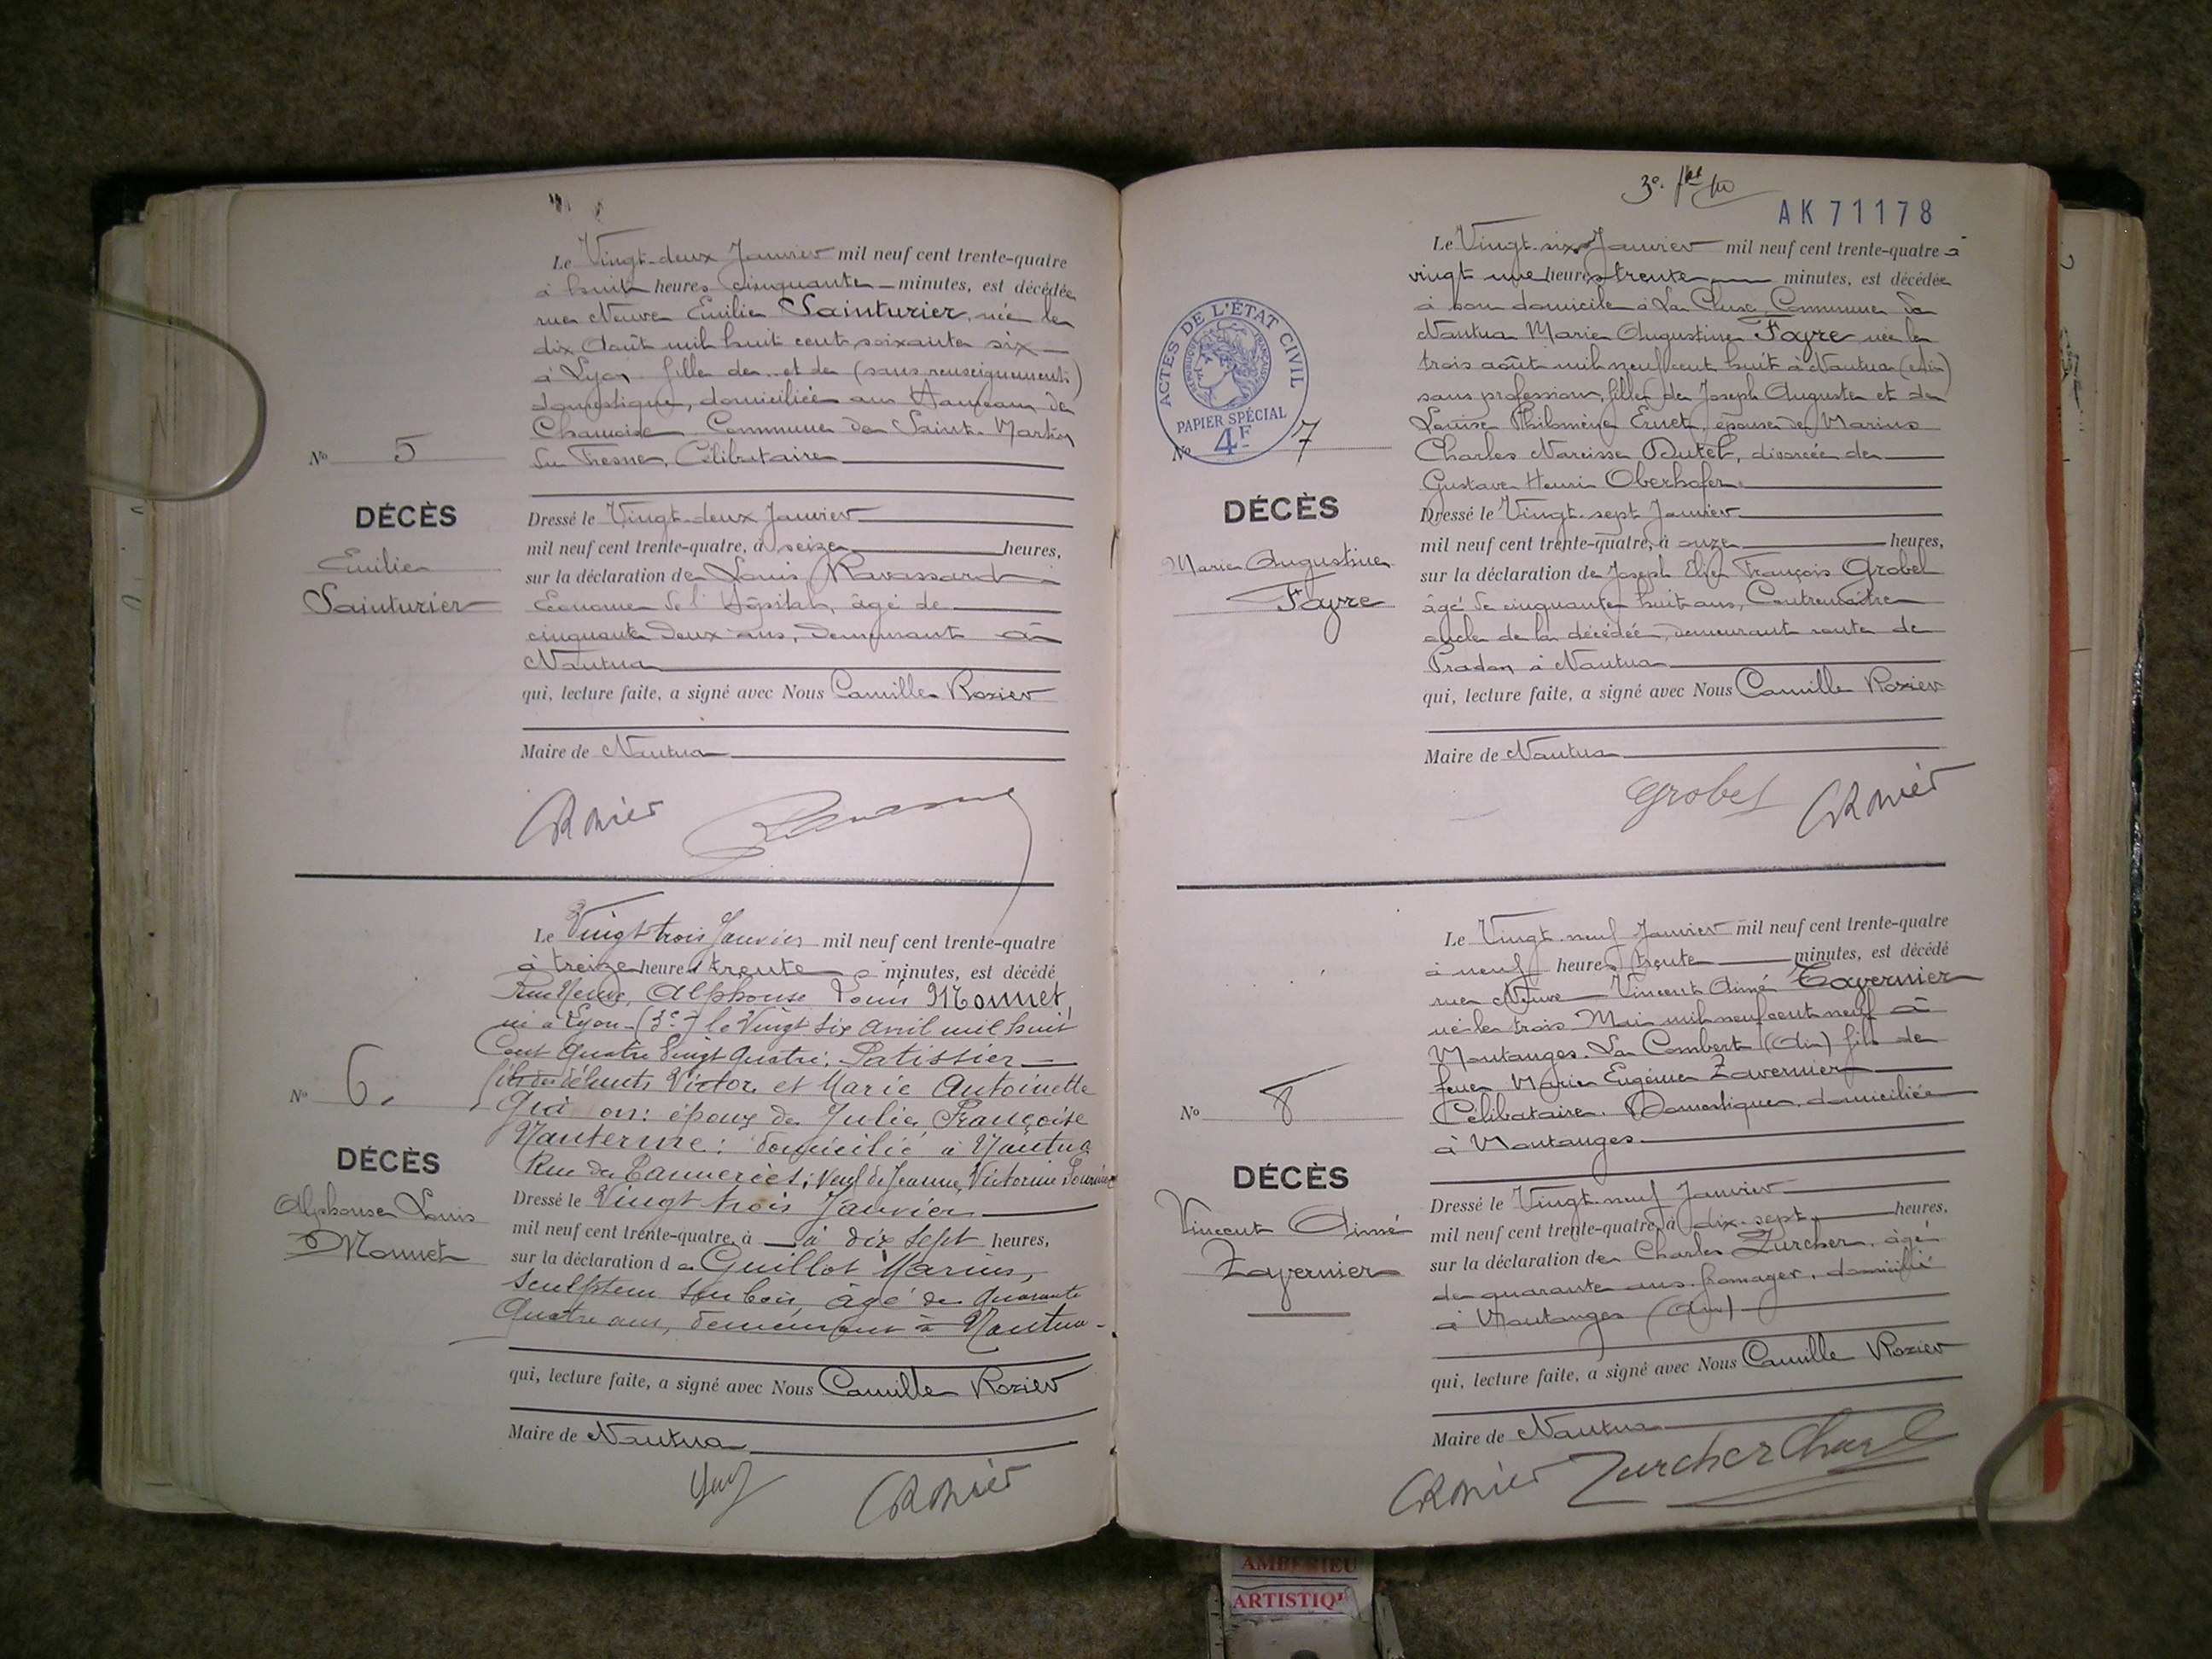 Le Vingt-deux Janvier mil neuf cent trente-quatre
à huit heures cinquante minutes, est décédée
rue Neuve Emilie Sainturier, née le
dix Août mil huit cent soixante six
à Lyon fille de .. et de (sans renseignements)
domestique, domiciliée au Hameau de
Chamoise Commune de Saint-Martin
du Fresne, Célibataire
Nº 5
DÉCÈS
Emilie
Sainturier
Dressé le Vingt-deux Janvier
mil neuf cent trente-quatre, à seize heures,
sur la déclaration de Louis Ravassard
Econome de l'Hôpital, âgé de
cinquante deux ans, demeurant à
Nantua
qui, lecture faite, a signé avec Nous Camille Rozier
Maire de Nantua
CRozier
Le Vingt trois Janvier mil neuf cent trente-quatre
à treize heures trente minutes, est décédé
Rue Neuve, Alphonse Louis Monnet,
né à Lyon (3e) le Vingt six avril mil huit
Cent quatre Vingt quatre; Patissier
fils des défunts Victor et Marie Antoinette
époux de Julie Françoise
Nanterme; domicilié à Nantua
Rue des Tanneries; Veuf de Jeanne Victorine
Nº 6.
DÉCÈS
Alphonse Louis
Monnet
Dressé le Vingt trois Janvier
mil neuf cent trente-quatre, à à dix sept heures,
sur la déclaration de Guillot Marius,
Sculpteur sur bois, âgé de quarante
quatre ans, demeurant à Nantua
qui, lecture faite, a signé avec Nous Camille Rozier
Maire de Nantua
CRozier
AK 71178
Le Vingt-six Janvier mil neuf cent trente-quatre à
vingt une heures trente minutes, est décédée
à son domicile à La Cluse, Commune de
Nantua Marie Augustine Fayre née le
trois août mil neuf cent huit à Nantua (Ain)
sans profession, fille de Joseph Auguste et de
Louise Philomène Ernet, épouse de Marius
Charles Narcisse Dutel, divorcée de
Gustave Henri Oberhofer
ACTES DE L'ÉTAT CIVIL
RÉPUBLIQUE FRANÇAISE
PAPIER SPÉCIAL
4F
Nº 7
DÉCÈS
Marie Augustine
Fayre
Dressé le Vingt-sept Janvier
mil neuf cent trente-quatre, à onze heures,
sur la déclaration de Joseph François Grobel
âgé de cinquante huit ans, Contremaître
oncle de la décédée, demeurant route de
Pradon à Nantua
qui, lecture faite, a signé avec Nous Camille Rozier
Maire de Nantua
Grobel CRozier
Le Vingt-neuf Janvier mil neuf cent trente-quatre
à neuf heures trente minutes, est décédé
rue Neuve Vincent Aimé Tavernier
né le trois Mai mil neuf cent neuf à
Montanges. La Combert (Ain) fils de
feue Marie Eugénie Tavernier
Célibataire, Domestique, domicilié
à Montanges
Nº 8
DÉCÈS
Vincent Aimé
Tavernier
Dressé le Vingt-neuf Janvier
mil neuf cent trente-quatre, à dix-sept heures,
sur la déclaration de Charles Zurcher, âgé
de quarante ans, fromager, domicilié
à Montanges (Ain)
qui, lecture faite, a signé avec Nous Camille Rozier
Maire de Nantua
CRozier Zurcher Charl
AMBERIEU
ARTISTIQU